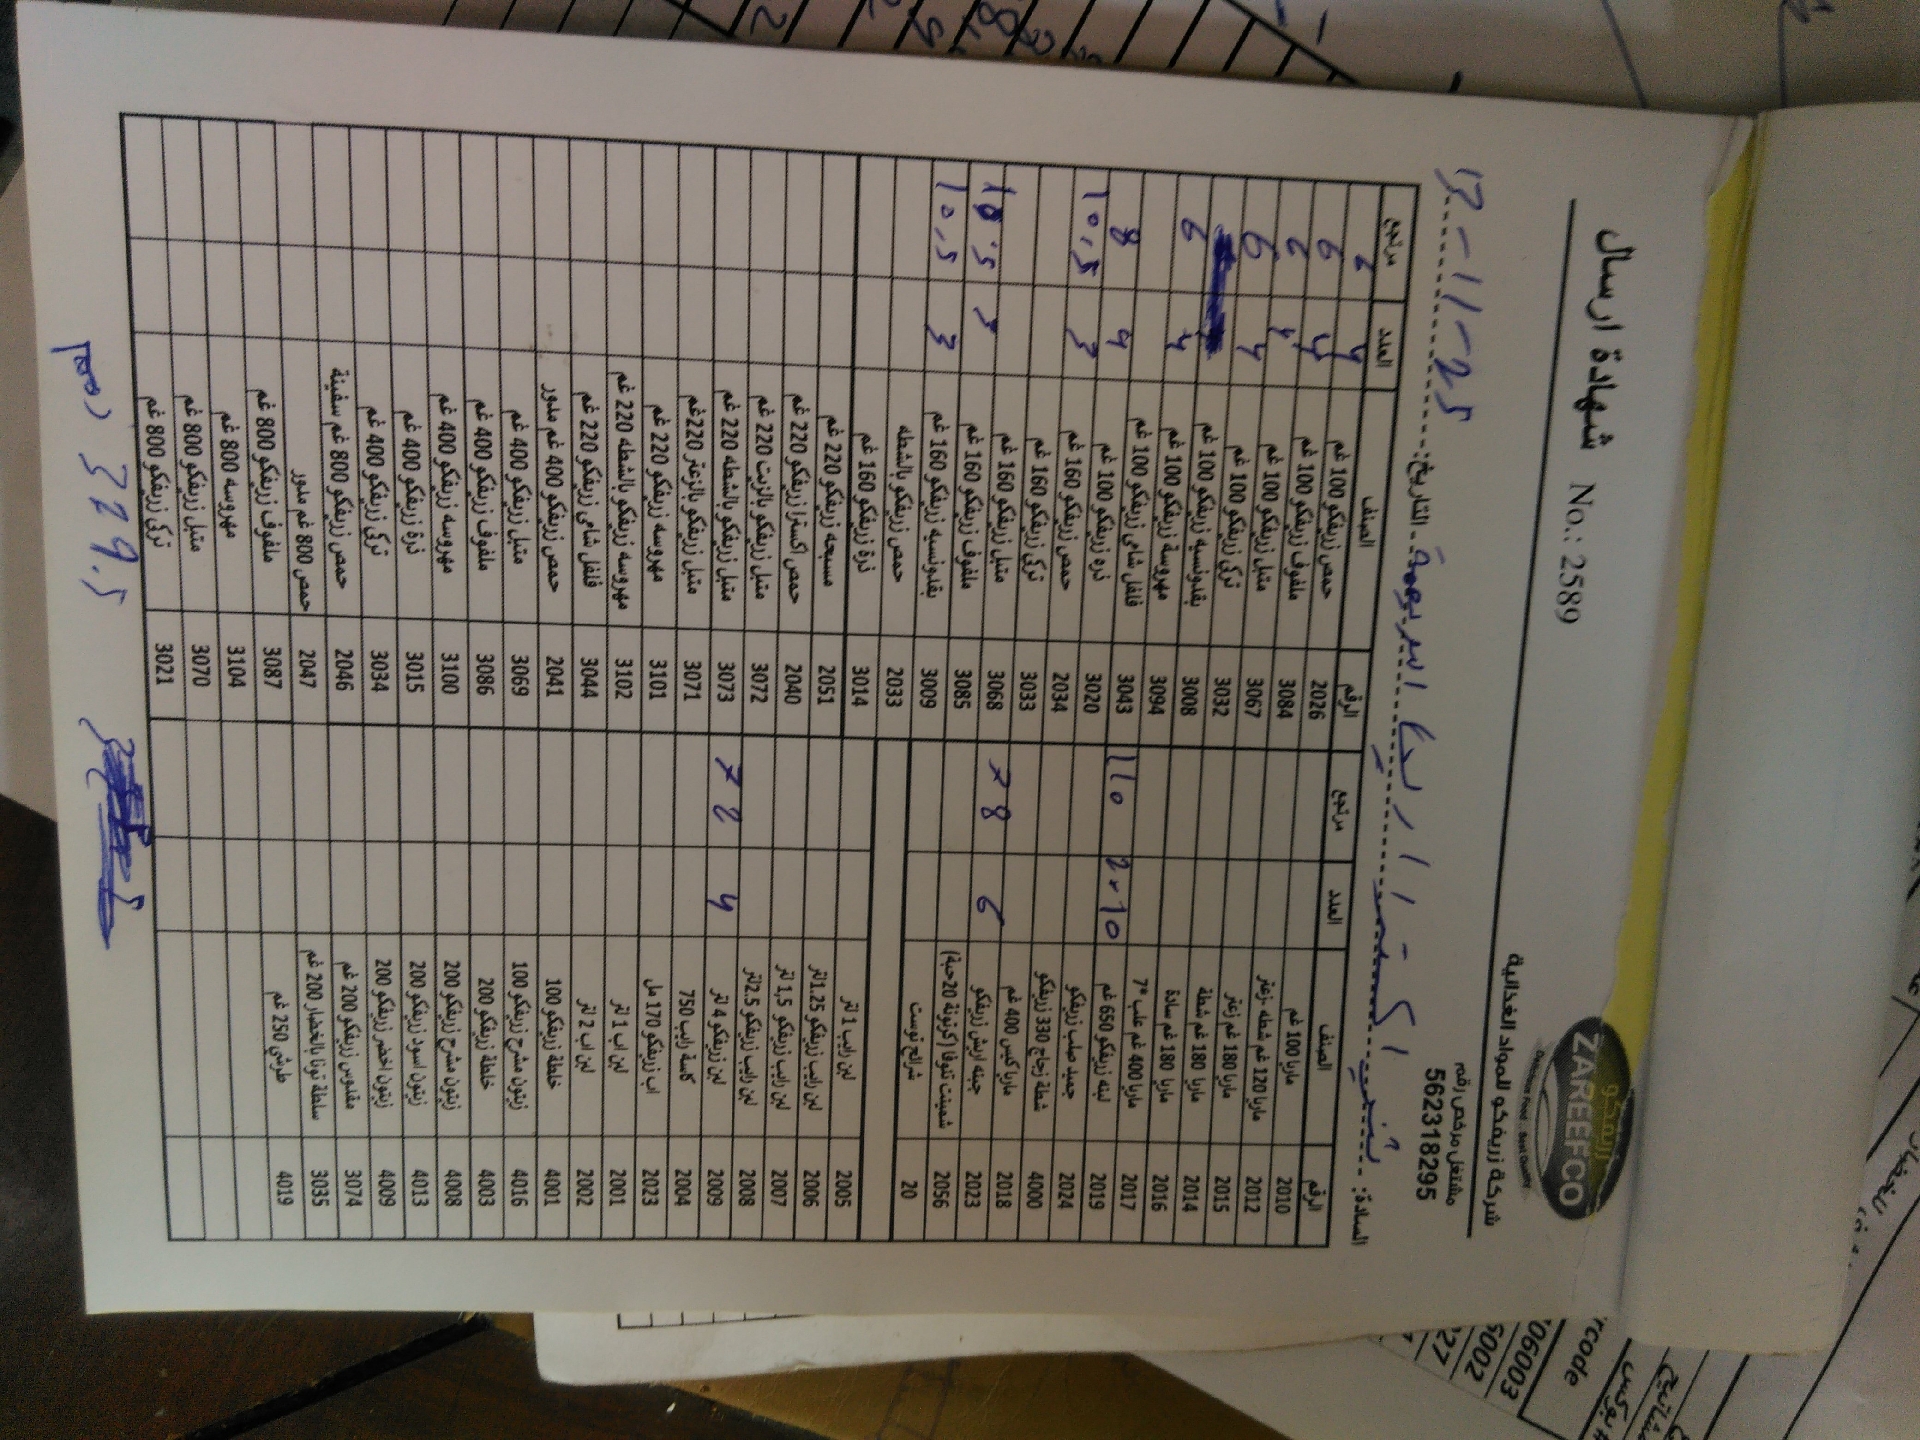 شركة زريفكو للمواد الغذائية
مشتغل مرخص رقم
562318295
زريفكو
ZAREEFCO
شهادة ارسال No.: 2589
السادة:
التاريخ: 13-11-25
الرقم الصنف العدد مرتجع الرقم الصنف العدد مرتجع
2010 ماريا 100 غم 2026 حمص زريفكو 100 غم 4 6
2012 ماريا 120 غم شطه -زعتر 3084 ملفوف زريفكو 100 غم 4 6
2015 ماريا 180 غم زعتر 3067 متبل زريفكو 100 غم 4 6
2014 ماريا 180 غم شطة 3032 تركي زريفكو 100 غم 4 6
2016 ماريا 180 غم سادة 3008 بقدونسيه زريفكو 100 غم
2017 ماريا 400 غم علب *7 3094 مهروسة زريفكو 100 غم 4 6
2019 لبنه زريفكو 650 غم 10 110 3043 فلفل شامي زريفكو 100 غم 4 8
2024 جميد صلب زريفكو 3020 ذره زريفكو 100 غم 3 10.5
4000 شطة زجاج 330 زريفكو 2034 حمص زريفكو 160 غم
2018 ماريا كيس 400 غم 3033 تركي زريفكو 160 غم
2023 جبنه اريش زريفكو 6 78 3068 متبل زريفكو 160 غم 3 10.5
2056 شمينت تنوفا (كرتونة 20حبة) 3085 ملفوف زريفكو 160 غم 3 10.5
20 شرائح توست 3009 بقدونسيه زريفكو 160 غم
2033 حمص زريفكو بالشطه
2005 لبن رايب 1 لتر 3014 ذرة زريفكو 160 غم
2006 لبن رايب زريفكو 1.25لتر 2051 مسبحه زريفكو 220 غم
2007 لبن رايب زريفكو 1,5 لتر 2040 حمص اكسترا زريفكو 220 غم
2008 لبن رايب زريفكو 2.5لتر 3072 متبل زريفكو بالزيت 220 غم
2009 لبن زريفكو 4 لتر 4 72 3073 متبل زريفكو بالشطه 220 غم
2004 كاسة رايب 750 3071 متبل زريفكو بالزعتر 220غم
2023 اب زريفكو 170 مل 3101 مهروسه زريفكو 220 غم
2001 لبن اب 1 لتر 3102 مهروسه زريفكو بالشطه 220 غم
2002 لبن اب 2 لتر 3044 فلفل شامي زريفكو 220 غم
4001 خلطة زريفكو 100 2041 حمص زريفكو 400 غم مدور
4016 زيتون مشرح زريفكو 100 3069 متبل زريفكو 400 غم
4003 خلطة زريفكو 200 3086 ملفوف زريفكو 400 غم
4008 زيتون مشرح زريفكو 200 3100 مهروسه زريفكو 400 غم
4013 زيتون اسود زريفكو 200 3015 ذرة زريفكو 400 غم
4009 زيتون اخضر زريفكو 200 3034 تركي زريفكو 400 غم
3074 مقدوس زريفكو 200 غم 2046 حمص زريفكو 800 غم سفينة
3035 سلطة تونا بالخضار 200 غم 2047 حمص 800 غم مدور
4019 طرشي 250 غم 3087 ملفوف زريفكو 800 غم
3104 مهروسه 800 غم
3070 متبل زريفكو 800 غم
3021 تركي زريفكو 800 غم